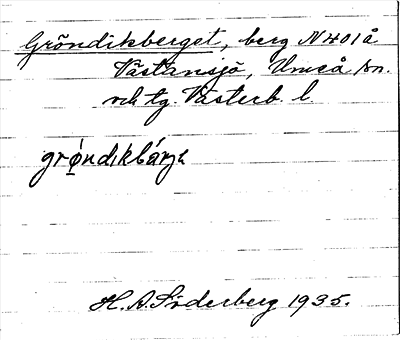 Gröndikberget, berg N 401å
Västansjö, Umeå sn.
och tg. Västerb. l.
grǿndıkbárjə
H. A. Söderberg 1935.